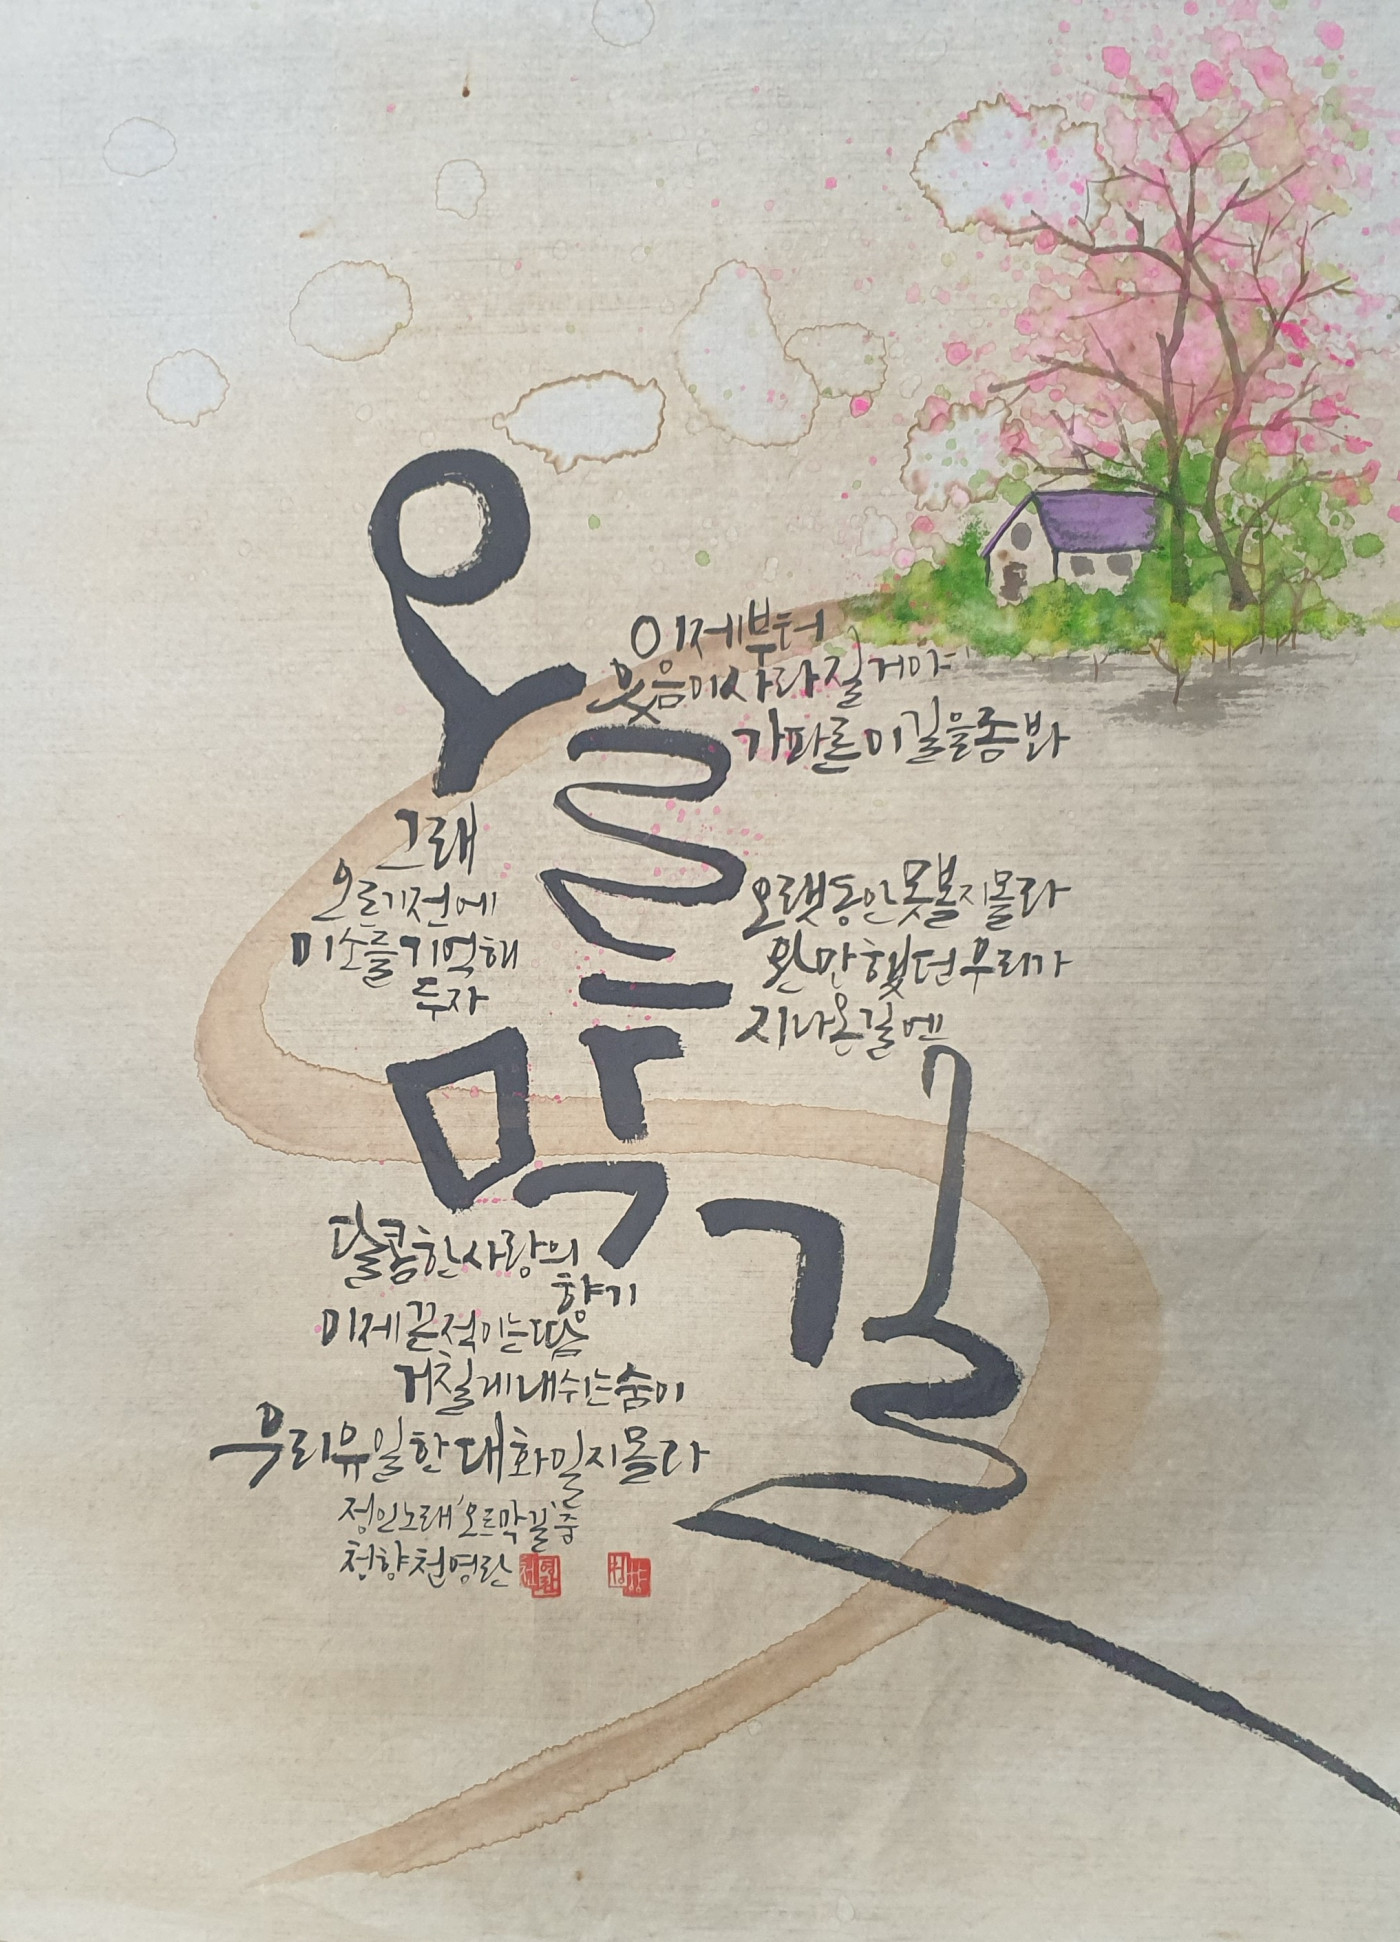 오르막길
이제부터
웃음이 사라질 거야
가파른 이 길을 좀 봐
그래
오르기 전에
미소를 기억해
두자
오랫동안 못 볼지 몰라
완만했던 우리가
지나온 길엔
달콤한 사랑의
향기
이제 끈적이는 땀
거칠게 내쉬는 숨이
우리 유일한 대화일지 몰라
정인 노래 '오르막길' 중
천향 천영란